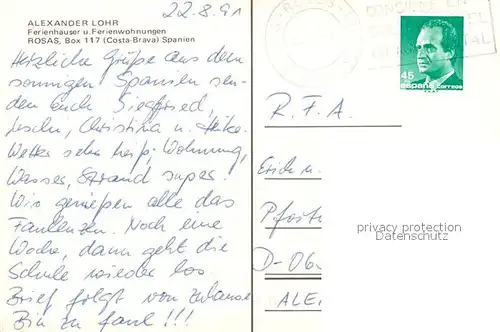 22.8.91
ALEXANDER LOHR
Ferienhäuser u. Ferienwohnungen
ROSAS, Box 117 (Costa-Brava) Spanien
Herzliche Grüße aus dem
sonnigen Spanien sen-
den Euch Siegfried,
Christina u. Heike.
Wetter sehr heiß; Wohnung,
Wasser, Strand super.
Wir genießen alle das
Faulenzen. Noch eine
Woche, dann geht die
Schule wieder los.
Brief folgt von zuhause
Bin zu faul !!!
ROSAS
CONSIGNE EN
POSTAL
45
españa correos
R.F.A.
Erich u.
Pfört
D-06
ALE
privacy protection
Datenschutz